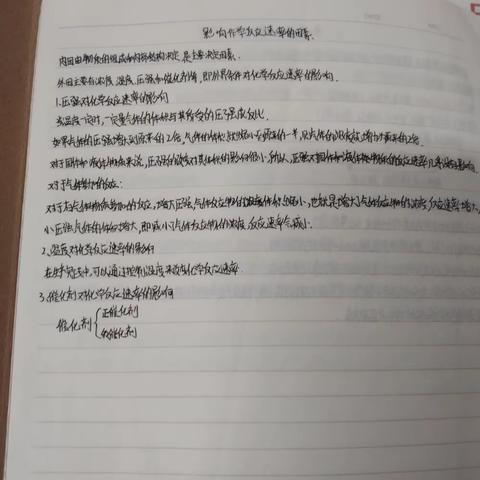 影响化学反应速率的因素
内因由物质的组成和内部结构决定,是主要决定因素.
外因主要有浓度、温度、压强和催化剂等,即外界条件对化学反应速率的影响.
1.压强对化学反应速率的影响
当温度一定时,一定量气体的体积与其所受的压强成反比.
如果气体的压强增大到原来的2倍,气体的体积就缩小至原来的一半,
对于固体和液体物质来说,压强的改变对其体积的影响很小,所以,压强
对于气体的反应:
对于有气体物质参加的反应,增大压强,气体反应物的体积缩小,也就是增大了气体反应物的浓度,反应速率增大,
小压强,气体的体积增大,即减小了气体反应物的浓度,反应速率会减小.
2.温度对化学反应速率的影响
可以通过控制温度来改变化学反应速率.
3.催化剂对化学反应速率的影响
催化剂{正催化剂
负催化剂